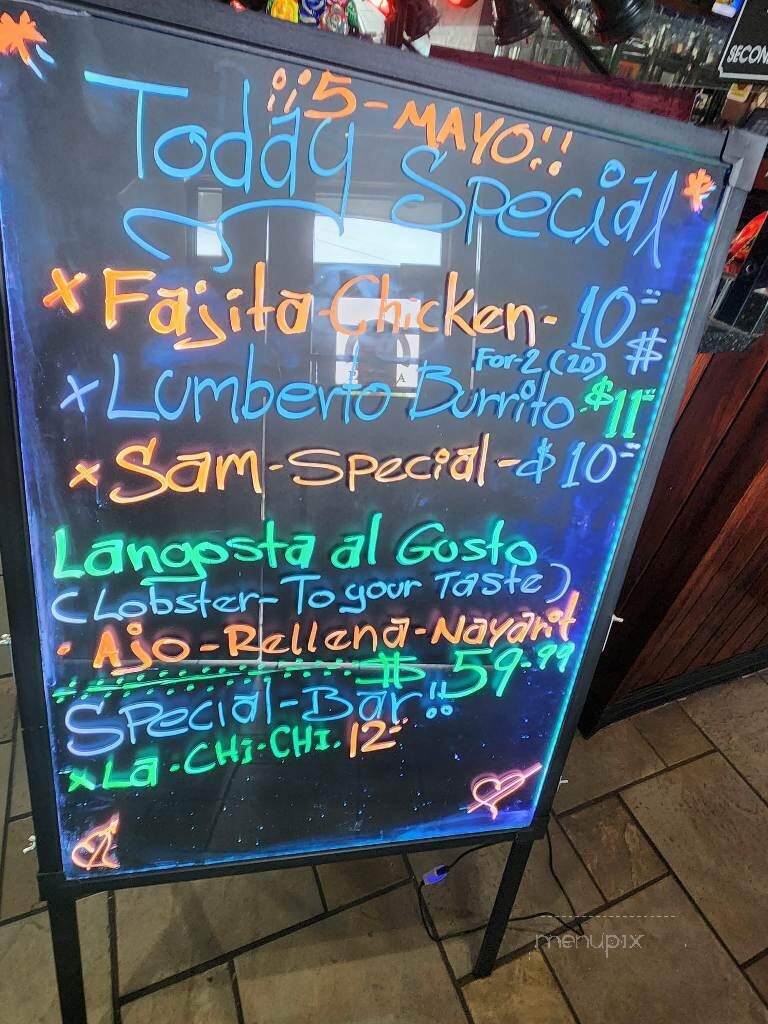 SECON
¡¡5-MAYO!!
Today Special
x Fajita-Chicken- 10= $
For-2 (20)
x Lumberto Burrito $11=
x Sam-Special-$10=
Langosta al Gusto
(Lobster-To your Taste)
• Ajo-Rellena-Nayarit
$59.99
Special-Bar!!
x La-CHi-CHI. 12=
menupix